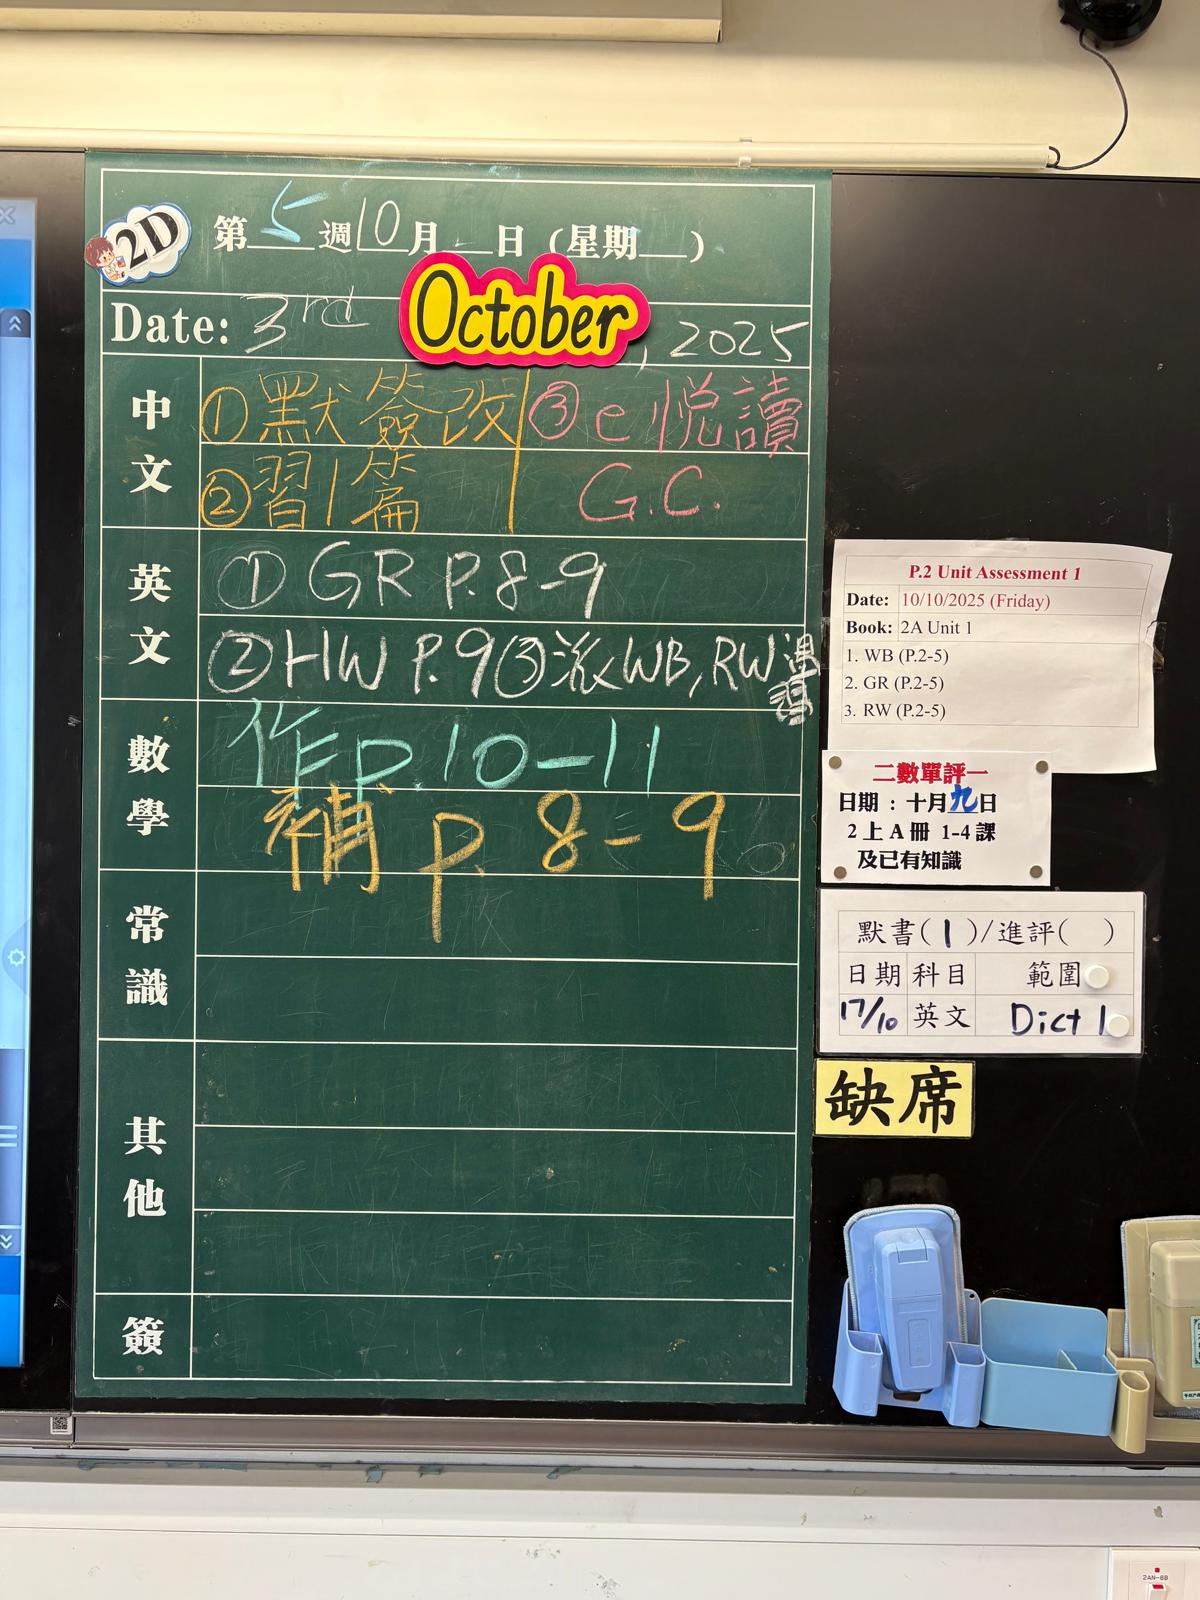 2D
第5週10月__日(星期__)
Date: 3rd October, 2025
中文
①默簽改 ③e悅讀
②習1篇 G.C.
英文
①GR P.8-9
②HW P.9③派WB, RW溫習
數學
作P.10-11
補P.8-9
常識
其他
簽
P.2 Unit Assessment 1
Date: 10/10/2025 (Friday)
Book: 2A Unit 1
1. WB (P.2-5)
2. GR (P.2-5)
3. RW (P.2-5)
二數單評一
日期：十月九日
2上A冊 1-4課
及已有知識
默書(1)/進評( )
日期 科目 範圍
17/10 英文 Dict 1
缺席
2AN-8B